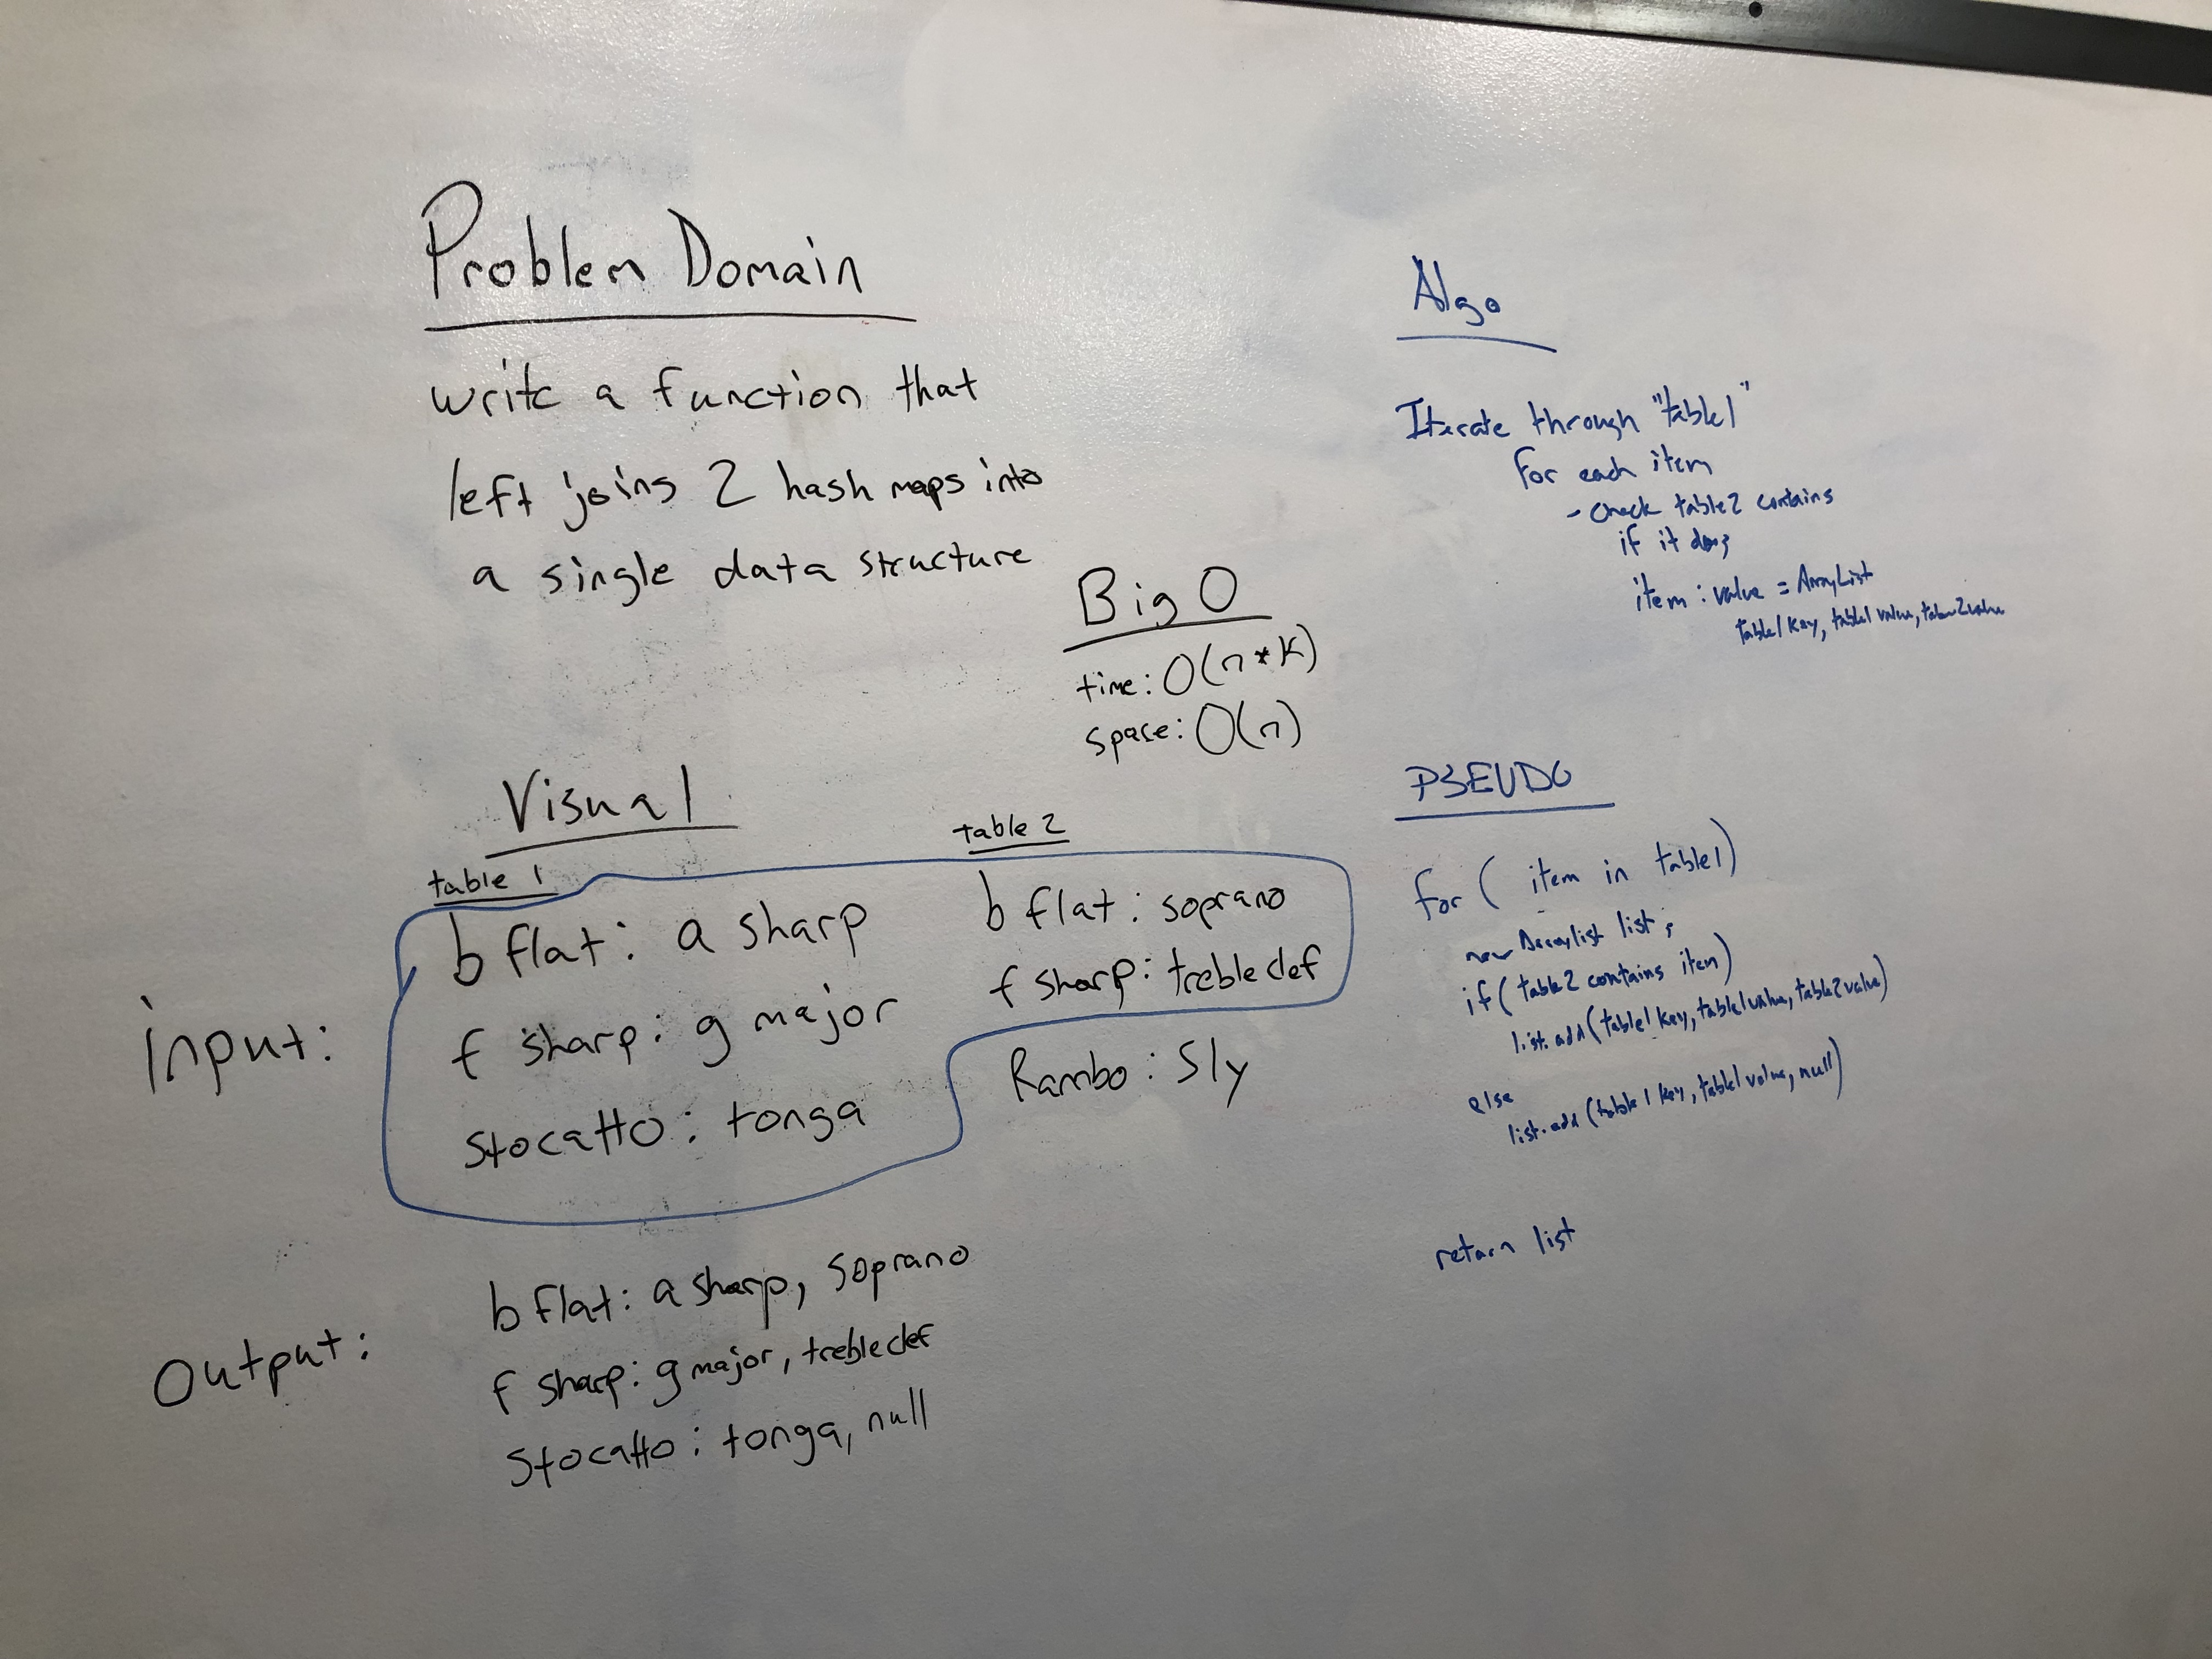 Problem Domain
write a function that
left joins 2 hash maps into
a single data structure
Big O
time: O(n*K)
space: O(n)
Visual
table 1
table 2
input:
b flat: a sharp
f sharp: g major
Stocatto: tonga
b flat: soprano
f sharp: treble clef
Rambo: Sly
Output:
b flat: a sharp, soprano
f sharp: g major, treble clef
Stocatto: tonga, null
Algo
Iterate through "table1"
for each item
- check table2 contains
if it does
item: value = ArrayList
table1 key, table1 value, table2value
PSEUDO
for ( item in table1)
new Arraylist list;
if (table2 contains item)
list.add(table1 key, table1value, table2value)
else
list.add(table1 key, table1 value, null)
return list